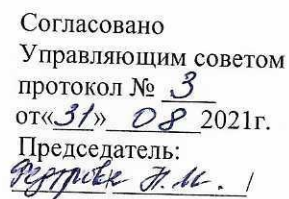 Согласовано
Управляющим советом
протокол № 3
от«31» 08 2021г.
Председатель:
Н. М. /